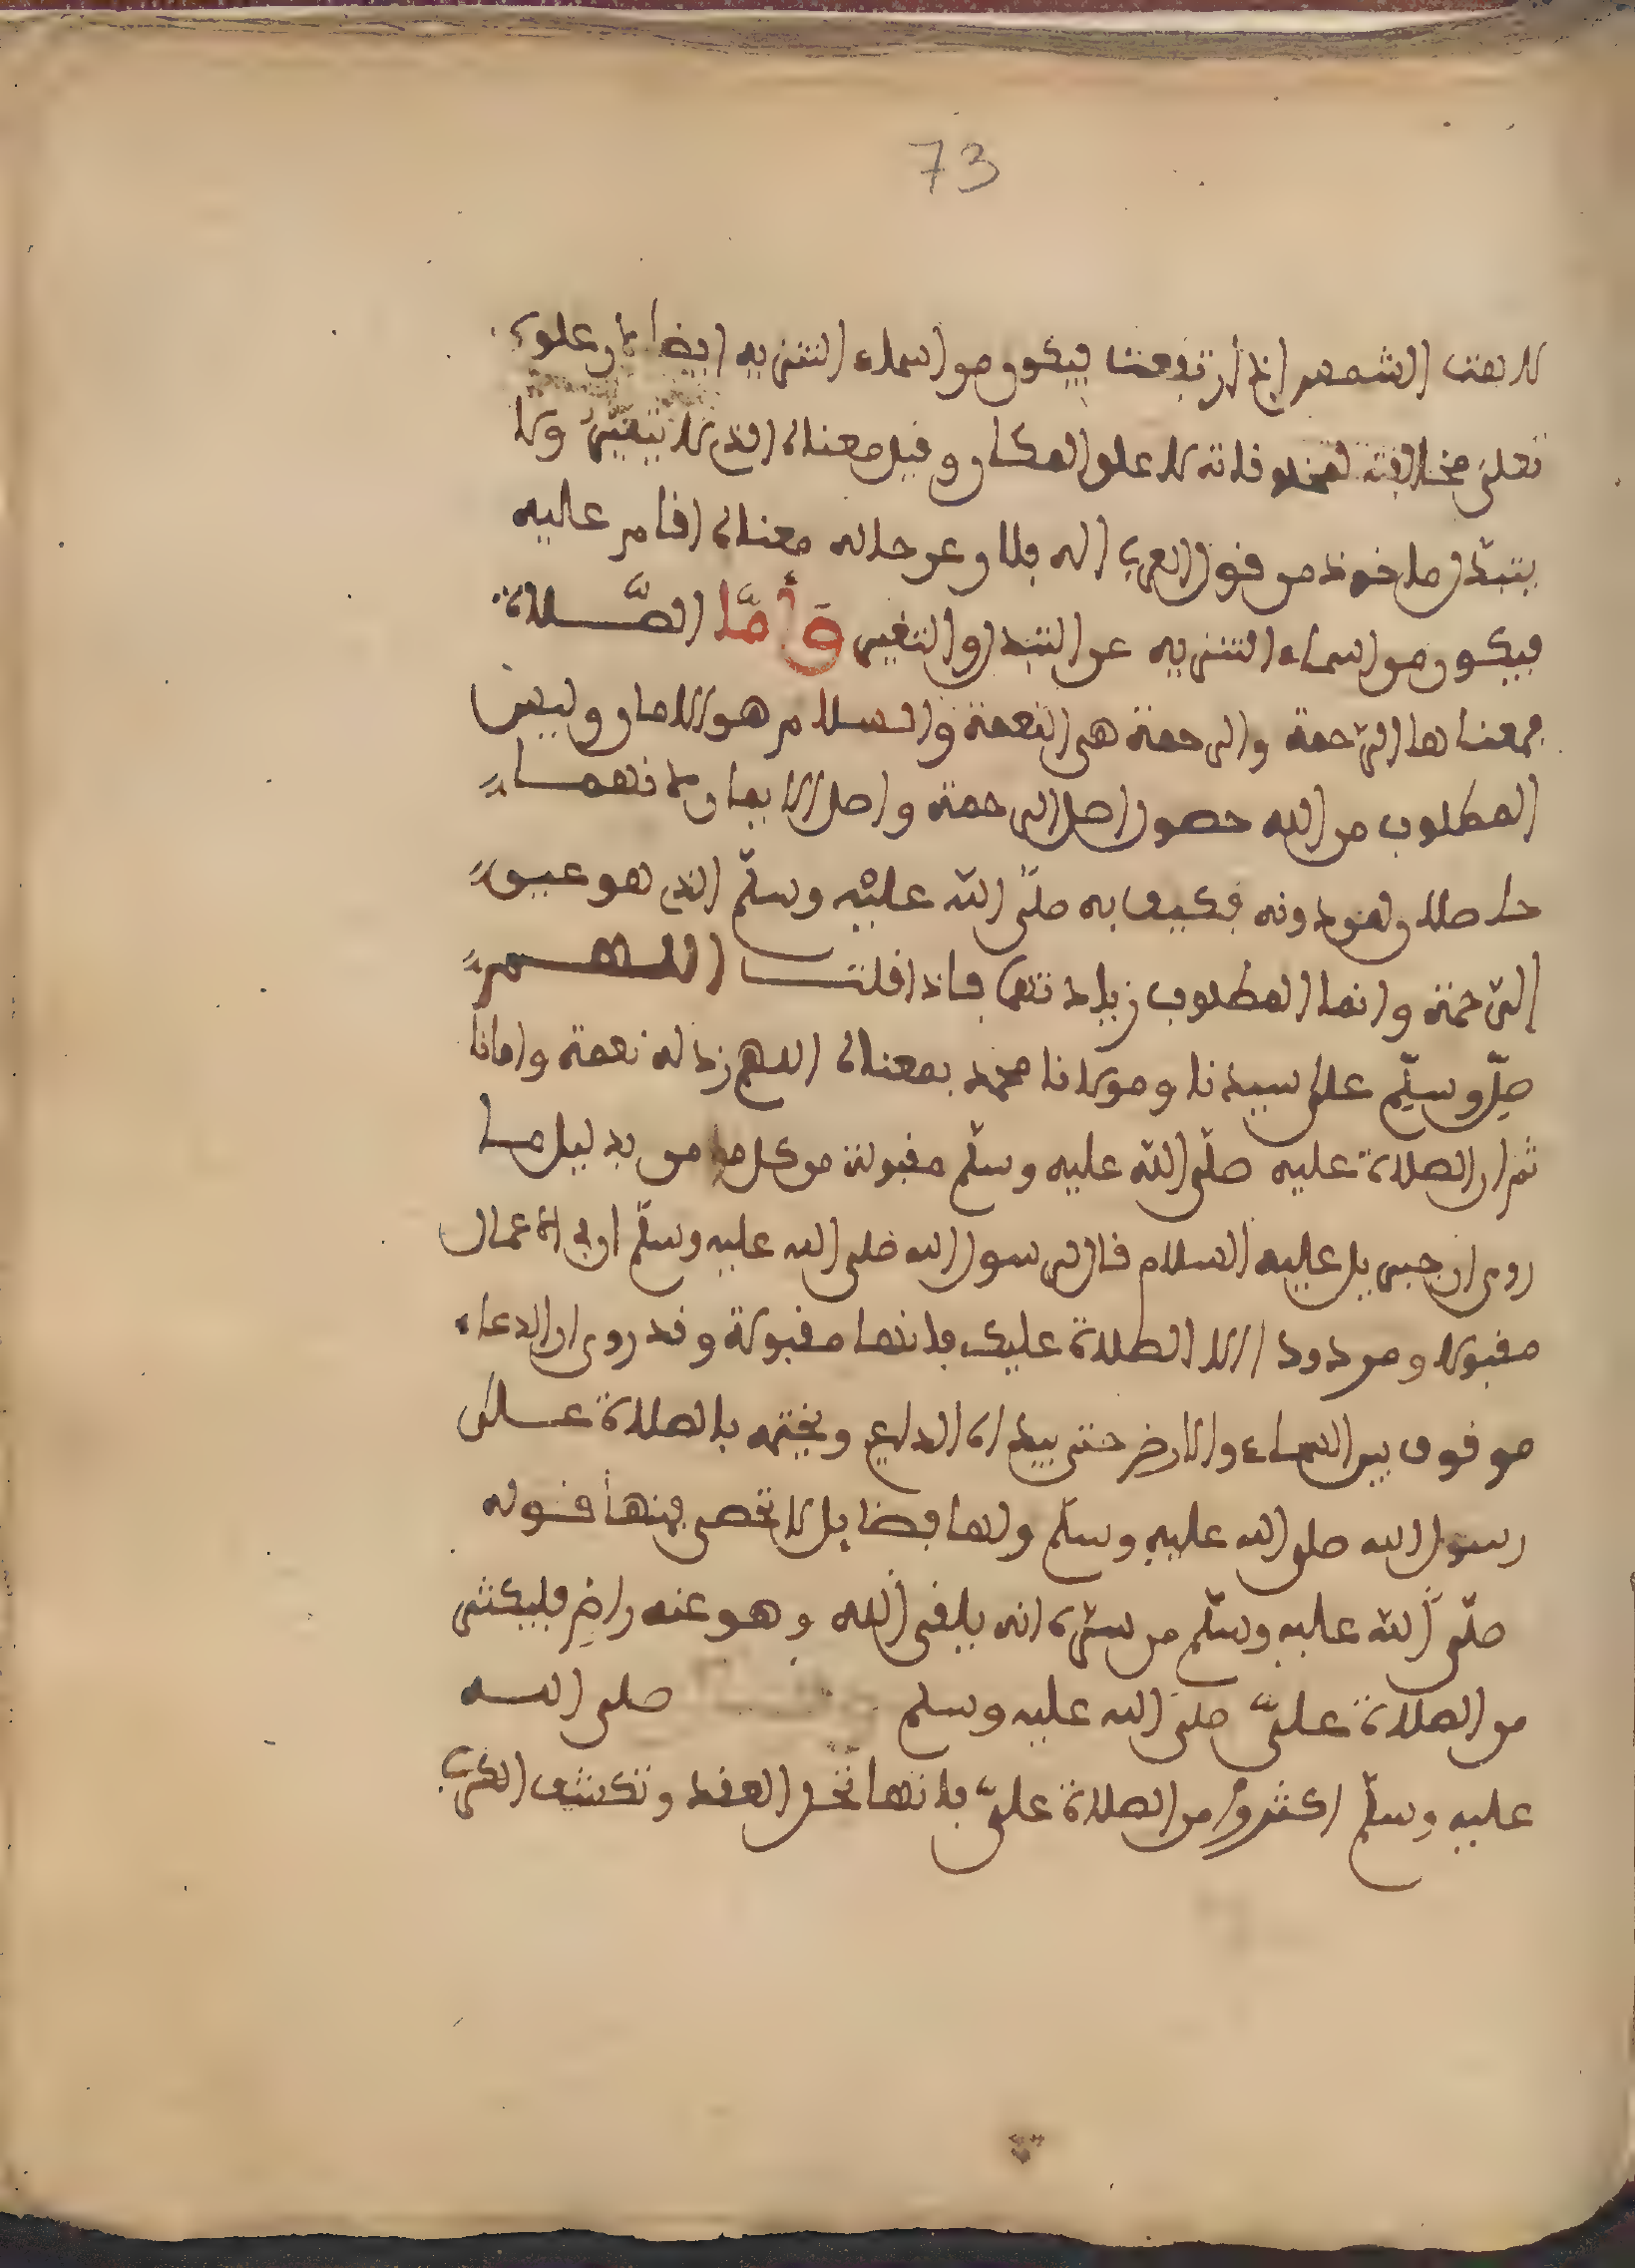 73
لاهت الشمس إذا ارتفعت فيكون من اسماء التنزيه ايضا لان علوه
تعلى مخالفته لمخلوقاته لا علو المكان وقيل معناه الذي لا يتغير ولا
يتبدل ماخوذ من قول العرب اله فلان عن حاله معناه اقام عليه
فيكون من اسماء التنزيه عن التبدل والتغير وَأَمَّا الصَّلاة
فمعناها الرّحمة والرحمة هي النعمة والسلام هو الامان وليس
المطلوب من الله حصول اصل الرحمة واصل الامان لانهما
حاصلان لمن دونه فكيف به صلّى اللّه عليْه وسلّم الذي هو عين
الرّحمة وانما المطلوب زيادتهما فاذا قلت اللهم
صلّ وسلّم على سيدنا ومولانا محمد بمعناه اللهم زد له نعمة وامانا
ثم ان الصلاة عليه صلّى اللّه عليه وسلّم مقبولة من كل مومن بدليل ما
روي ان جبريل عليه السلام قال لرسول الله صلى الله عليه وسلّم ان الاعمال
مقبول ومردود الا الصلاة عليك فانها مقبولة وقد روي ان الدعاء
موقوف بين السماء والارض حتى يبداه الداعي ويختمه بالصلاة على
رسول الله صلى الله عليه وسلّم ولها فضايل لا تحصى فمنها قوله
صلّى اللّه عليه وسلّم من سرّه انه يلقى اللّه وهو عنه راضٍ فليكثر
من الصلاة عليّ صلى الله عليه وسلم صلى الله
عليه وسلّم اكثروا من الصلاة عليّ فانها تحل العقد وتكشف الكرب